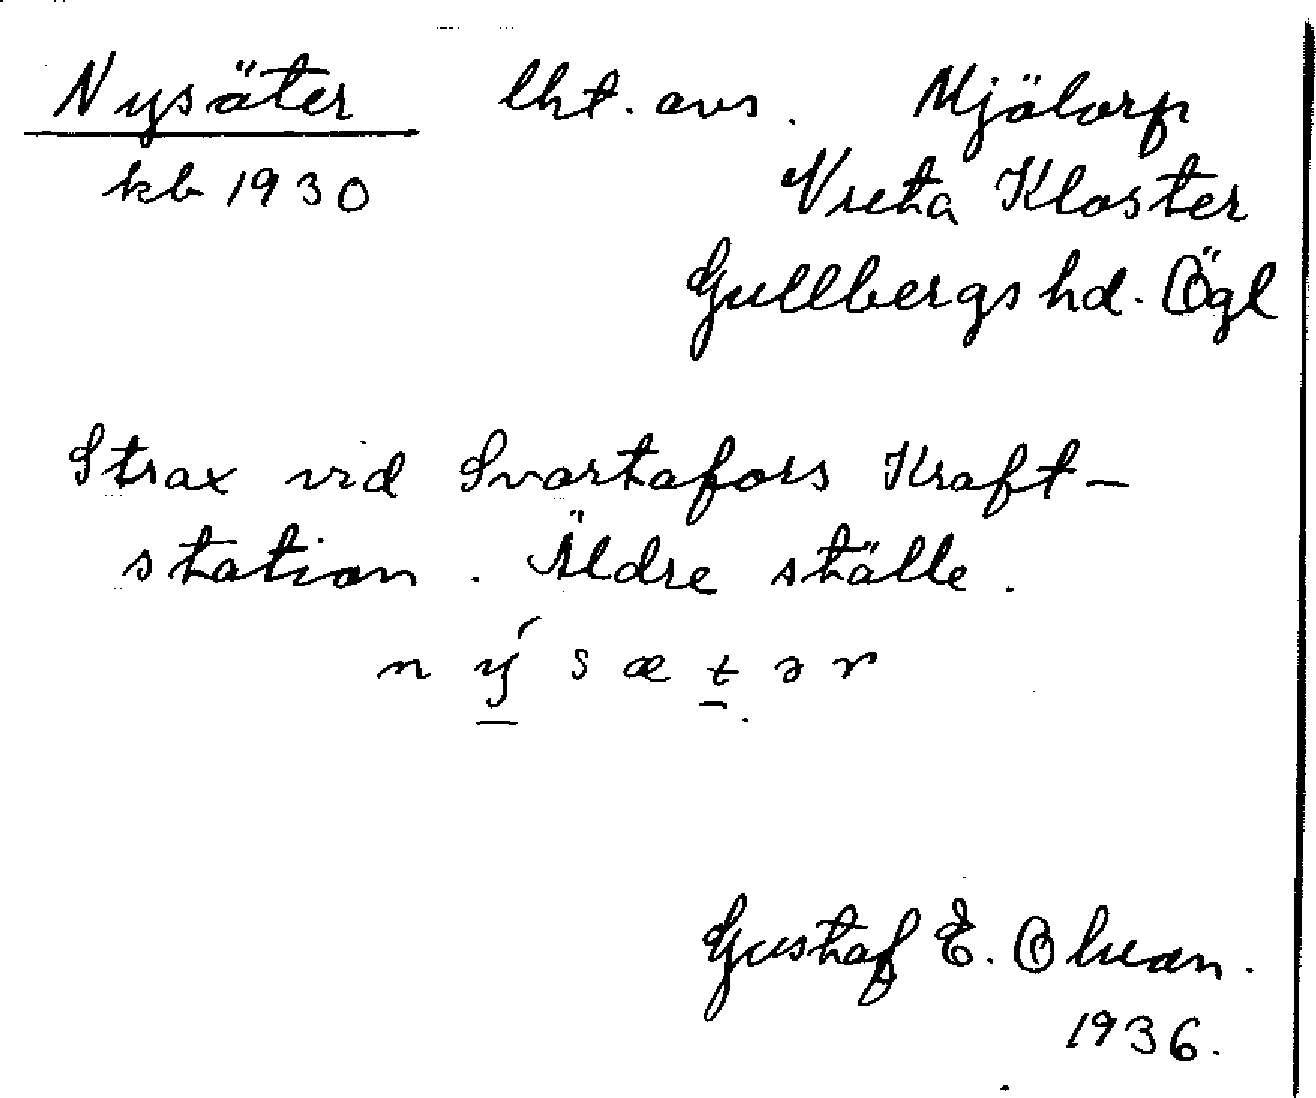 Nysäter lht. avs. Mjölorp
kb 1930 Vreta Kloster
Gullbergs hd. Ögl
Strax vid Svartafors Kraft-
station. Äldre ställe.
n ý s æ t ə r
Gustaf E. Olson.
1936.